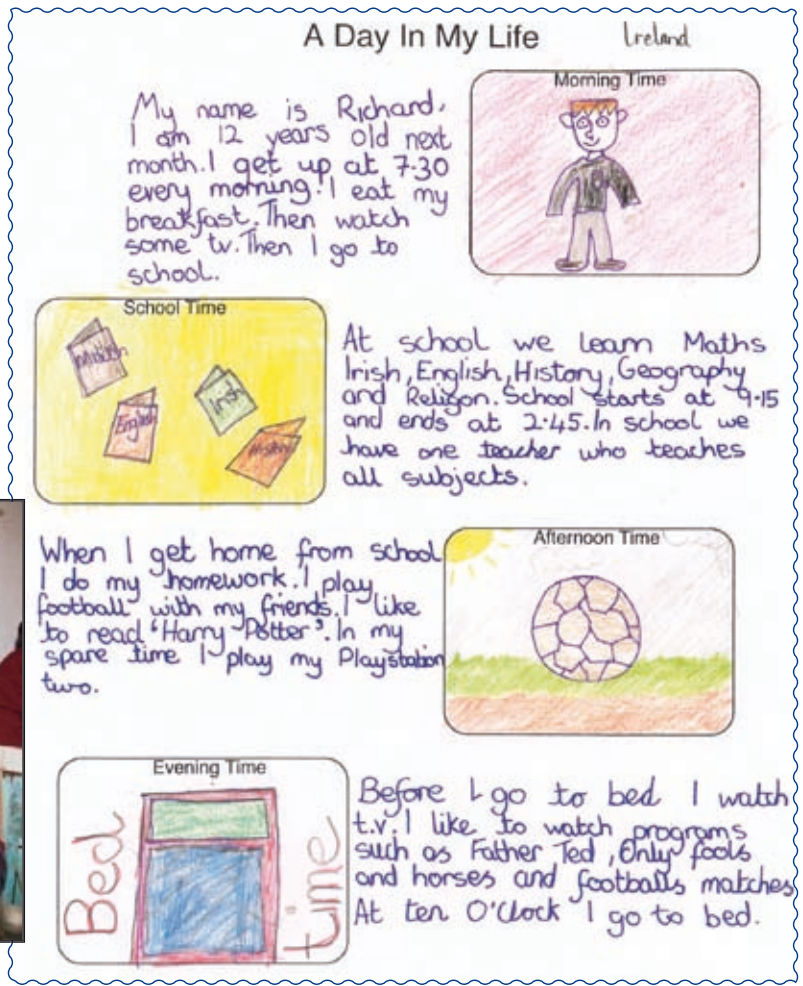 A Day In My Life
Ireland
Morning Time
My name is Richard.
I am 12 years old next
month. I get up at 7.30
every morning. I eat my
breakfast. Then watch
some tv. Then I go to
school.
School Time
Maths
English
Irish
History
At school we learn Maths
Irish, English, History, Geography
and Religon. School starts at 9.15
and ends at 2.45. In school we
have one teacher who teaches
all subjects.
When I get home from school
I do my homework. I play
football with my friends. I like
to read 'Harry Potter'. In my
spare time I play my Playstation
two.
Afternoon Time
Evening Time
Bed
time
Before I go to bed I watch
t.v. I like to watch programs
such as Father Ted, Only fools
and horses and footballs matches
At ten O'Clock I go to bed.